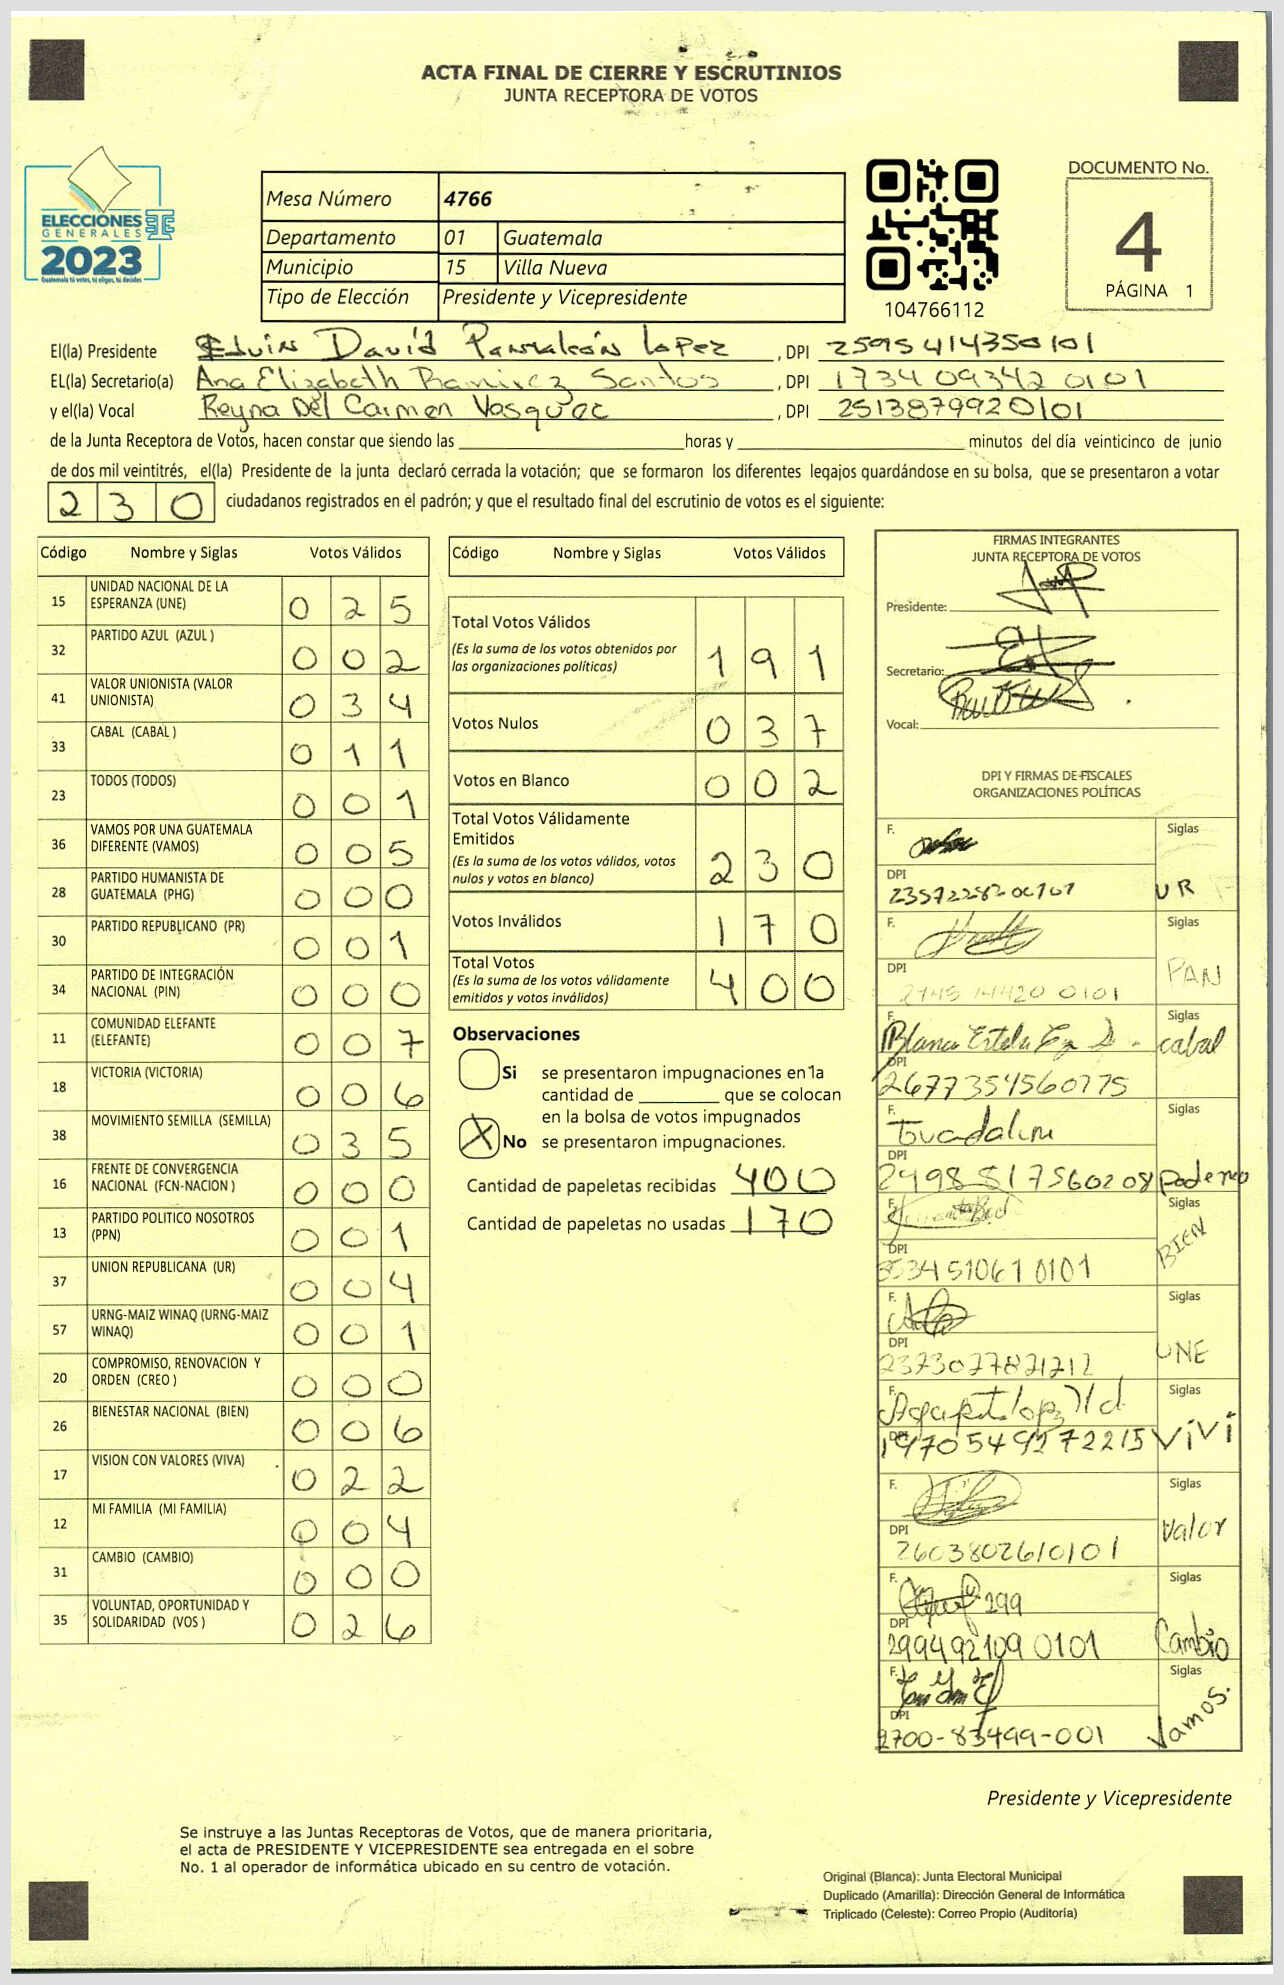 ACTA FINAL DE CIERRE Y ESCRUTINIOS
JUNTA RECEPTORA DE VOTOS
ELECCIONES
GENERALES
2023
Guatemala tú votas, tú eliges, tú decides
Mesa Número 4766
Departamento 01 Guatemala
Municipio 15 Villa Nueva
Tipo de Elección Presidente y Vicepresidente
104766112
DOCUMENTO No.
4
PÁGINA 1
El(la) Presidente Edvin David Pantaleón Lopez , DPI 2595414350101
EL(la) Secretario(a) Ana Elizabeth Ramirez Santos , DPI 1734093420101
y el(la) Vocal Reyna Del Carmen Vasquez , DPI 2513879920101
de la Junta Receptora de Votos, hacen constar que siendo las horas y minutos del día veinticinco de junio
de dos mil veintitrés, el(la) Presidente de la junta declaró cerrada la votación; que se formaron los diferentes legajos guardándose en su bolsa, que se presentaron a votar
230 ciudadanos registrados en el padrón; y que el resultado final del escrutinio de votos es el siguiente:
Código Nombre y Siglas Votos Válidos
15 UNIDAD NACIONAL DE LA ESPERANZA (UNE) 025
32 PARTIDO AZUL (AZUL ) 002
41 VALOR UNIONISTA (VALOR UNIONISTA) 034
33 CABAL (CABAL ) 011
23 TODOS (TODOS) 001
36 VAMOS POR UNA GUATEMALA DIFERENTE (VAMOS) 005
28 PARTIDO HUMANISTA DE GUATEMALA (PHG) 000
30 PARTIDO REPUBLICANO (PR) 001
34 PARTIDO DE INTEGRACIÓN NACIONAL (PIN) 000
11 COMUNIDAD ELEFANTE (ELEFANTE) 007
18 VICTORIA (VICTORIA) 006
38 MOVIMIENTO SEMILLA (SEMILLA) 035
16 FRENTE DE CONVERGENCIA NACIONAL (FCN-NACION ) 000
13 PARTIDO POLITICO NOSOTROS (PPN) 001
37 UNION REPUBLICANA (UR) 004
57 URNG-MAIZ WINAQ (URNG-MAIZ WINAQ) 001
20 COMPROMISO, RENOVACION Y ORDEN (CREO ) 000
26 BIENESTAR NACIONAL (BIEN) 006
17 VISION CON VALORES (VIVA) 022
12 MI FAMILIA (MI FAMILIA) 004
31 CAMBIO (CAMBIO) 000
35 VOLUNTAD, OPORTUNIDAD Y SOLIDARIDAD (VOS ) 026
Código Nombre y Siglas Votos Válidos
Total Votos Válidos
(Es la suma de los votos obtenidos por las organizaciones políticas) 191
Votos Nulos 037
Votos en Blanco 002
Total Votos Válidamente Emitidos
(Es la suma de los votos válidos, votos nulos y votos en blanco) 230
Votos Inválidos 170
Total Votos
(Es la suma de los votos válidamente emitidos y votos inválidos) 400
Observaciones
Si se presentaron impugnaciones en la
cantidad de que se colocan
en la bolsa de votos impugnados
X No se presentaron impugnaciones.
Cantidad de papeletas recibidas 400
Cantidad de papeletas no usadas 170
FIRMAS INTEGRANTES
JUNTA RECEPTORA DE VOTOS
Presidente:
Secretario:
Vocal:
DPI Y FIRMAS DE FISCALES
ORGANIZACIONES POLÍTICAS
F. Siglas
DPI
UR
F. Siglas
DPI
PAN
F. Siglas
Blanca Estela
cabal
DPI
2677354560775
F. Siglas
Guadalupe
DPI
2498817560208 podemos
F. Siglas
DPI
3534510610101 BIEN
F. Siglas
DPI
2373077871212 UNE
F. Siglas
DPI
1970549272215 ViVi
F. Siglas
DPI
2603802610101 Valor
F. Siglas
299
DPI
2994921090101 Cambio
F. Siglas
DPI
2700-83499-001 Vamos.
Presidente y Vicepresidente
Se instruye a las Juntas Receptoras de Votos, que de manera prioritaria,
el acta de PRESIDENTE Y VICEPRESIDENTE sea entregada en el sobre
No. 1 al operador de informática ubicado en su centro de votación.
Original (Blanca): Junta Electoral Municipal
Duplicado (Amarilla): Dirección General de Informática
Triplicado (Celeste): Correo Propio (Auditoría)